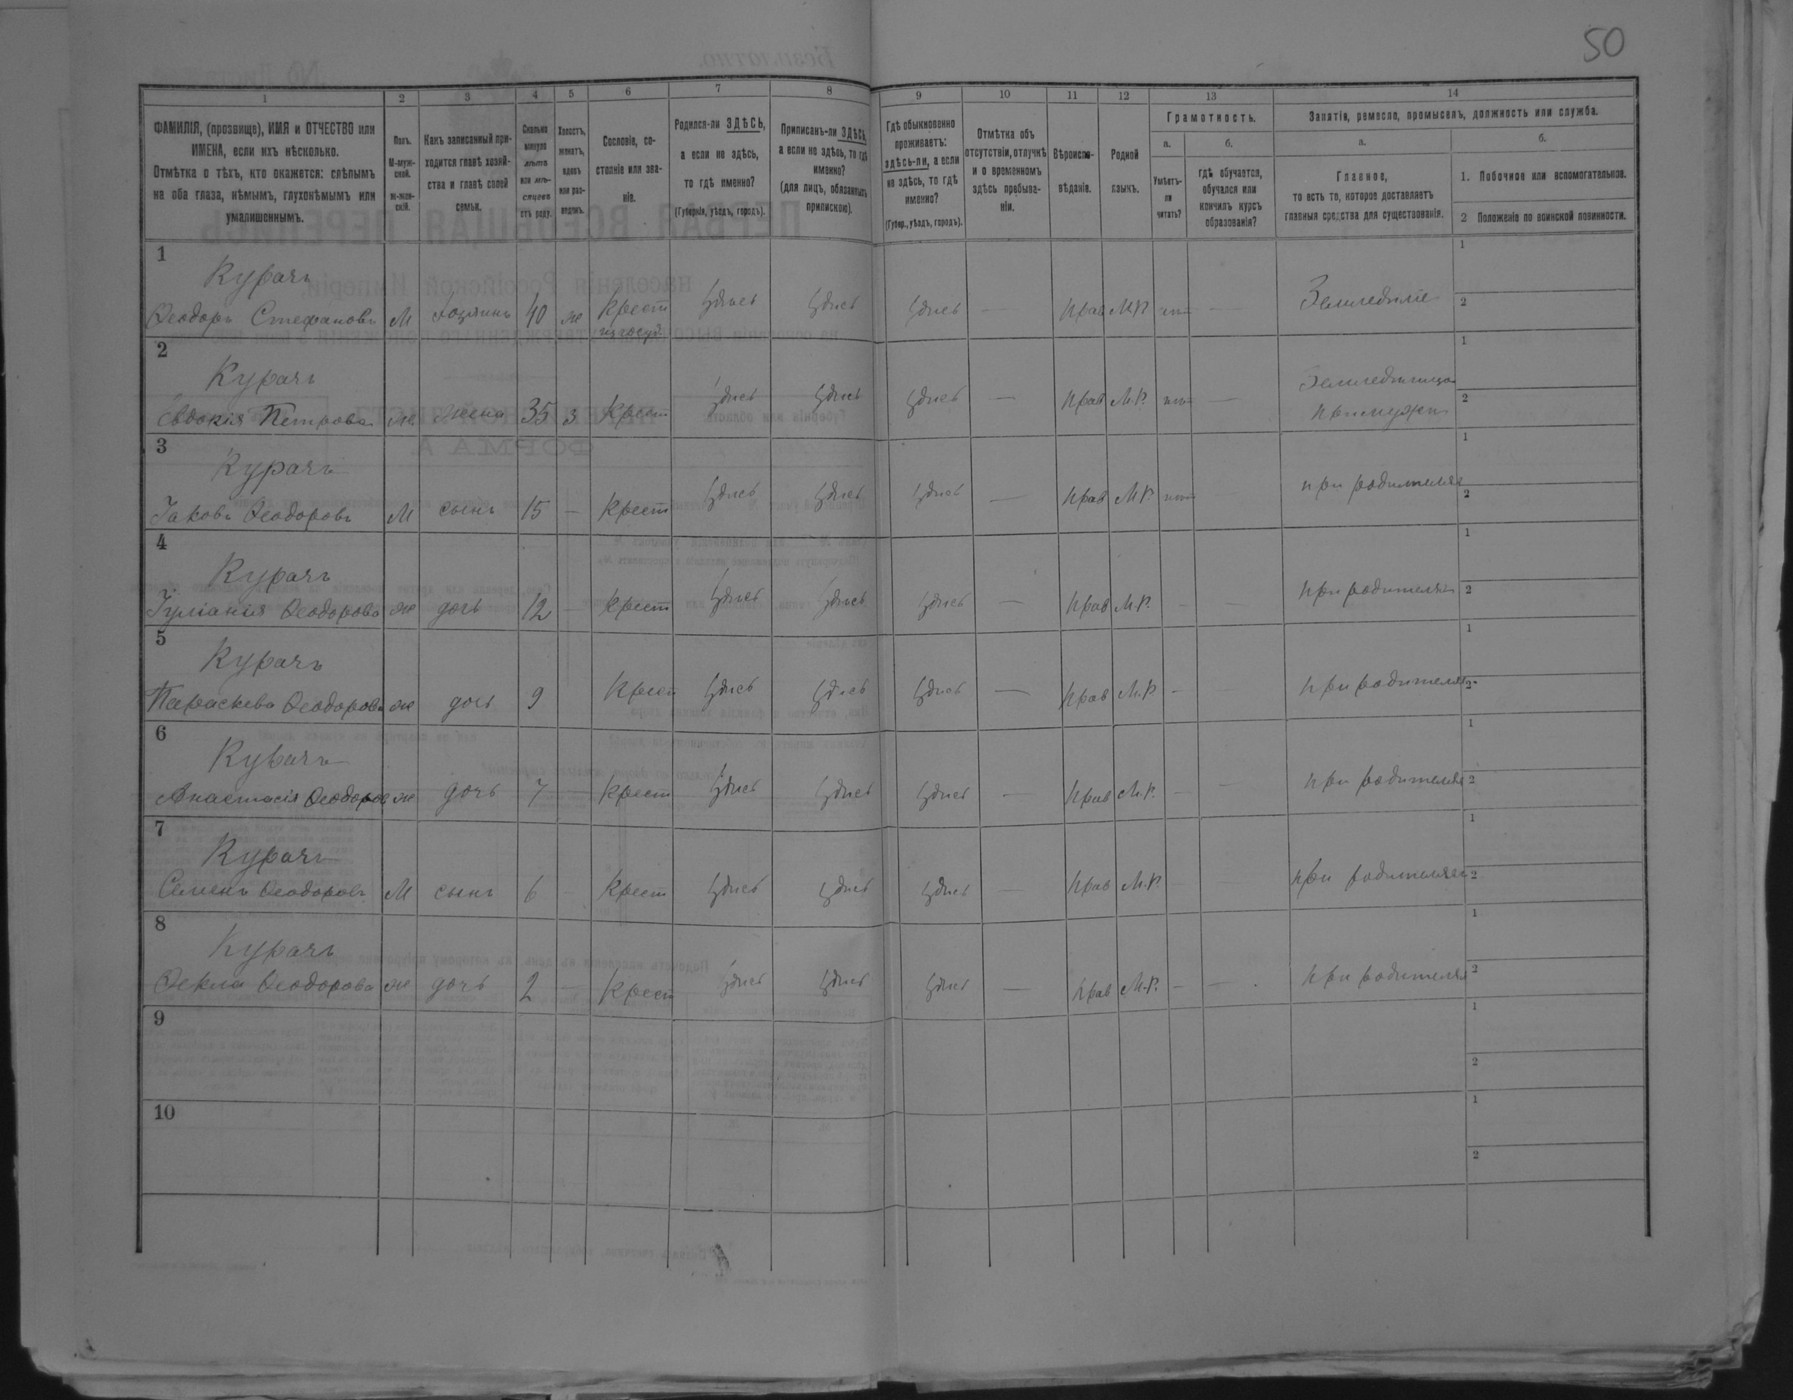 50
1 2 3 4 5 6 7 8 9 10 11 12 13 14
ФАМИЛІЯ, (прозвище), ИМЯ и ОТЧЕСТВО или ИМЕНА, если ихъ нѣсколько.
Отмѣтка о тѣхъ, кто окажется: слѣпымъ на оба глаза, нѣмымъ, глухонѣмымъ или умалишеннымъ.
Полъ. М-мужской. ж-женскій.
Какъ записанный приходится главѣ хозяйства и главѣ своей семьи.
Сколько минуло лѣтъ или мѣсяцевъ отъ роду.
Холостъ, женатъ, вдовъ или разведенъ.
Сословіе, состояніе или званіе.
Родился-ли ЗДѢСЬ, а если не здѣсь, то гдѣ именно? (Губернія, уѣздъ, городъ).
Приписанъ-ли ЗДѢСЬ, а если не здѣсь, то гдѣ именно? (для лицъ, обязанныхъ припискою).
Гдѣ обыкновенно проживаетъ: здѣсь-ли, а если не здѣсь, то гдѣ именно? (Губер., уѣздъ, городъ).
Отмѣтка объ отсутствіи, отлучкѣ и о временномъ здѣсь пребываніи.
Вѣроисповѣданіе.
Родной языкъ.
Грамотность.
а. Умѣетъ-ли читать?
б. гдѣ обучается, обучался или кончилъ курсъ образованія?
Занятіе, ремесло, промыселъ, должность или служба.
а. Главное, то есть то, которое доставляетъ главныя средства для существованія.
б. 1. Побочное или вспомогательное.
2 Положеніе по воинской повинности.
1 Курачъ 1
Ѳеодоръ Стефановъ М хозяинъ 40 ж Крест здѣсь здѣсь здѣсь — прав М.Р. — Земледѣліе 2
2 Курачъ 1
Евдокія Петрова ж жена 35 з Крест здѣсь здѣсь здѣсь — прав М.Р. — 2
при мужѣ
3 Курачъ 1
Іаковъ Ѳеодоровъ М сынъ 15 — Крест здѣсь здѣсь здѣсь — прав М.Р. при родителяхъ 2
4 Курачъ 1
Іуліанія Ѳеодорова ж дочь 12 — Крест здѣсь здѣсь здѣсь — прав М.Р. — — при родителяхъ 2
5 Курачъ 1
Параскева Ѳеодорова ж дочь 9 Крест здѣсь здѣсь здѣсь — прав М.Р. — — при родителяхъ 2
6 Курачъ 1
Анастасія Ѳеодоров ж дочь 7 — Крест здѣсь здѣсь здѣсь — прав М.Р. — — при родителяхъ 2
7 Курачъ 1
Семенъ Ѳеодоровъ М сынъ 6 — Крест здѣсь здѣсь здѣсь — прав М.Р. — — при родителяхъ 2
8 Курачъ 1
Ѳекла Ѳеодорова ж дочь 2 — Крест здѣсь здѣсь здѣсь — прав М.Р. — — при родителях 2
9 1
2
10 1
2